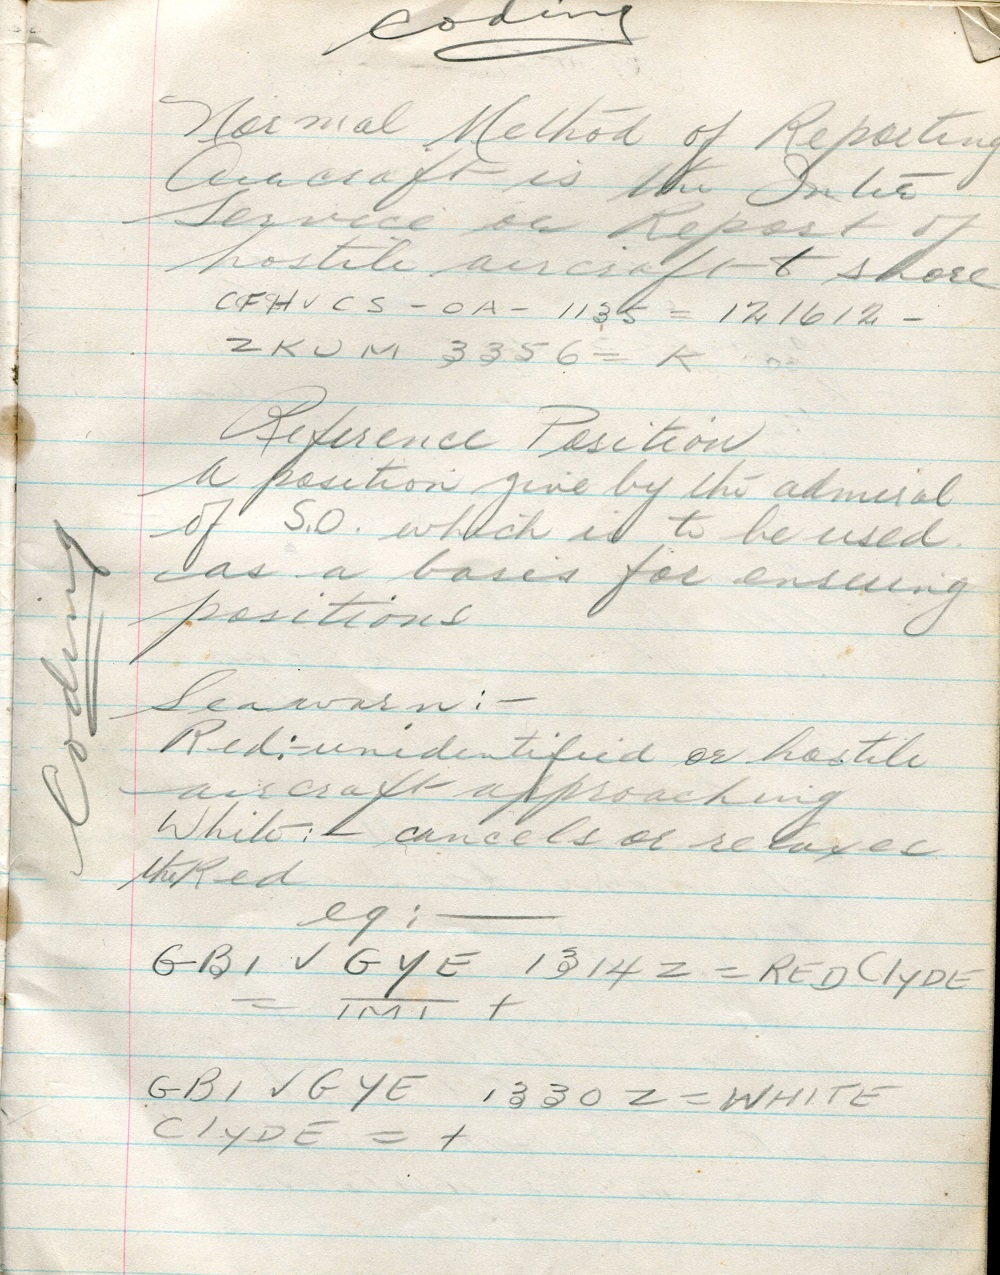 Coding
Normal Method of Reporting
Aircraft is the Inter
Service or Report of
hostile aircraft t shore
CFH V CS - OA - 1135 = 121612 -
ZKUM 3356 = K
Reference Position
A position give by the admiral
of S.O. which is to be used
as a basis for ensuing
positions
Seawarn :-
Red :- unidentified or hostile
aircraft approaching
White :- cancels or relaxes
the Red
eg : —
GB1 V GYE 1314Z = RED Clyde
= IMI +
GB1 V GYE 1330Z = WHITE
ClyDE = +
Coding